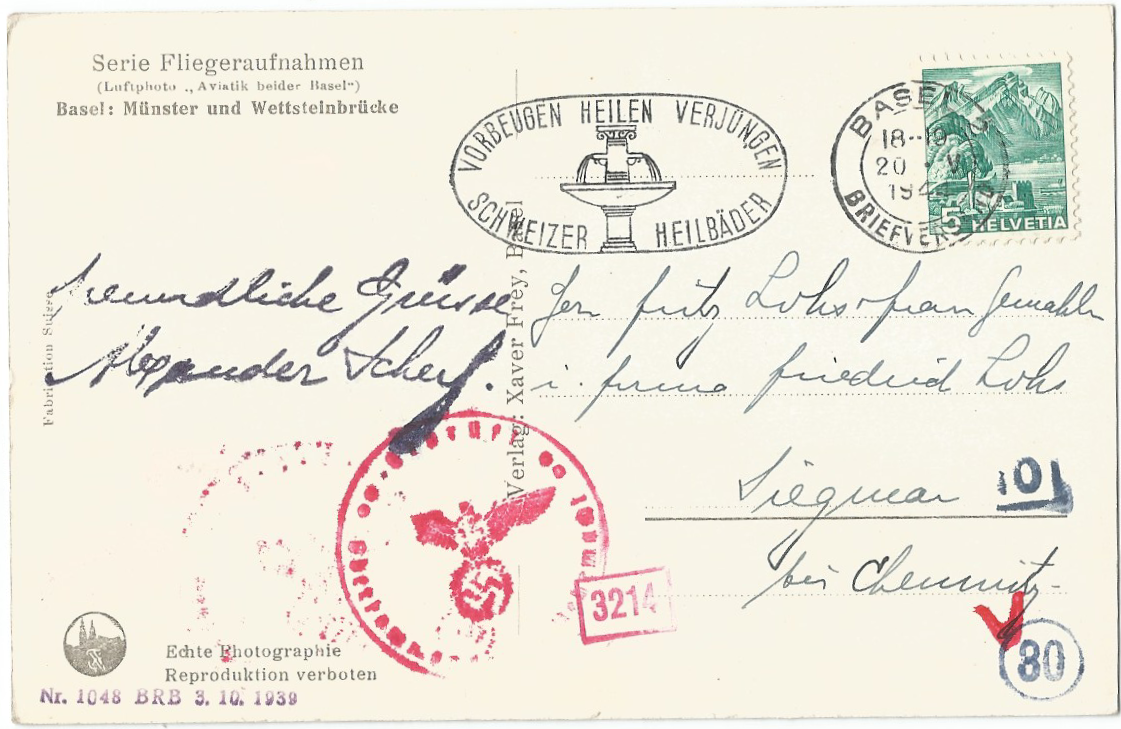 Serie Fliegeraufnahmen
(Luftphoto „Aviatik beider Basel“)
Basel: Münster und Wettsteinbrücke
VORBEUGEN HEILEN VERJÜNGEN
SCHWEIZER HEILBÄDER
BASEL 2
18--19
20. V
194
BRIEFVERS
5 HELVETIA
Freundliche Grüsse
Alexander Scherf.
Fabrication Suisse
Verlag: Xaver Frey, Basel
Hern Fritz Lohs & frau Gemahlin
i. firma friedrich Lohs
Siegmar
101
bei Chemnitz
Geprüft
Oberkommando der Wehrmacht
3214
80
Echte Photographie
Reproduktion verboten
Nr. 1048 BRB 3. 10. 1939